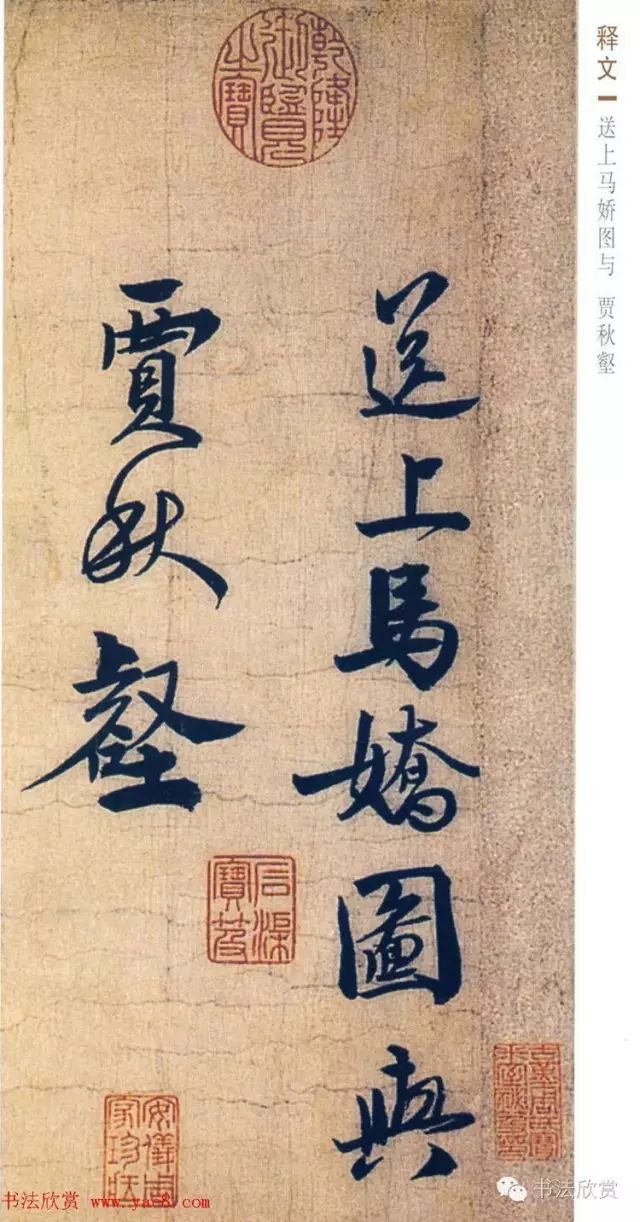 释文 送上马娇图与 贾秋壑
送上馬嬌圖與
賈秋壑
乾隆
御覽
之寶
石渠
寶笈
安儀周
家珍藏
书法欣赏 www.yac8.com
书法欣赏